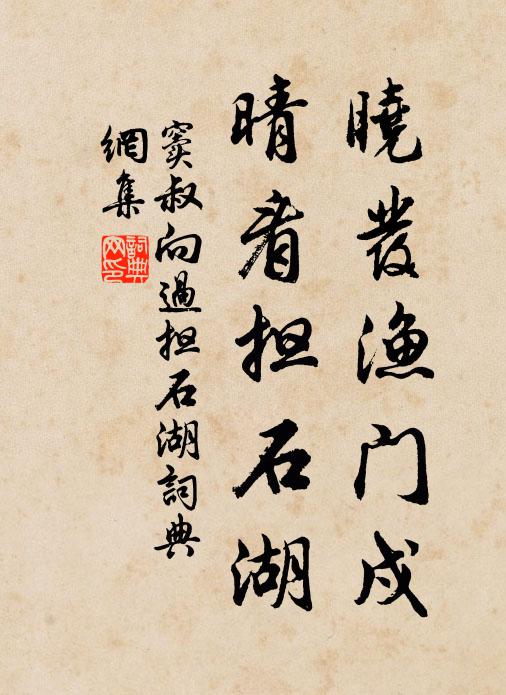 曉發漁门戍
晴看担石湖
窦叔向過担石湖詞典
網集
詞典
网印